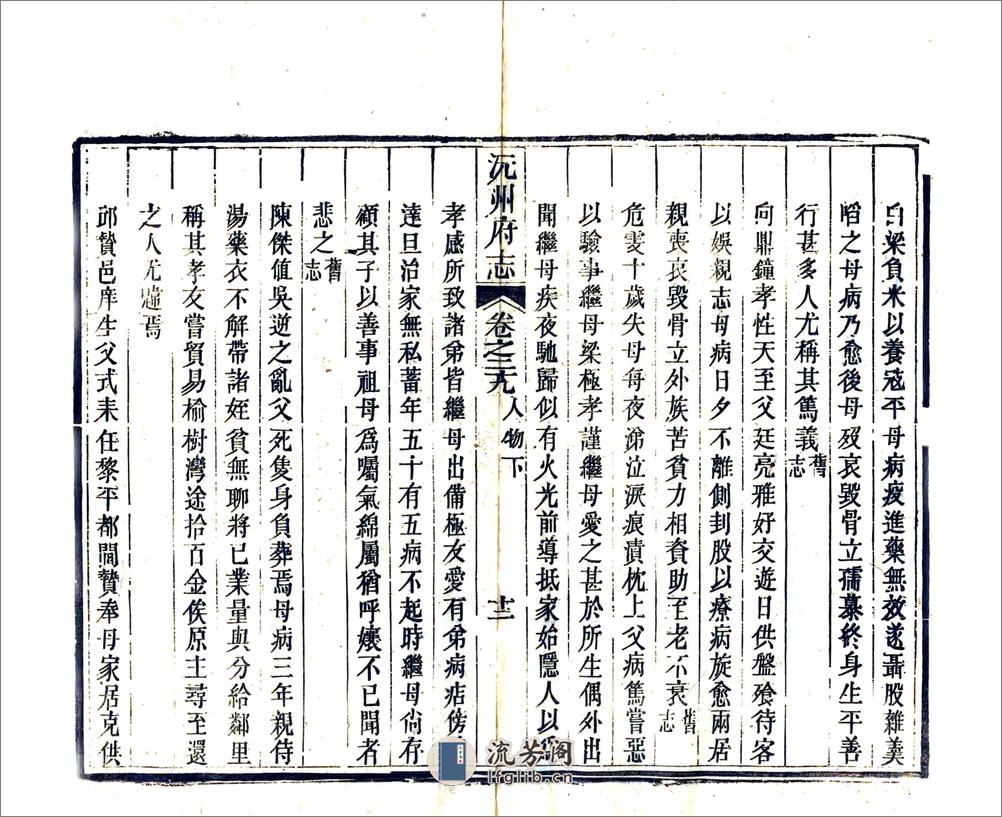 自梁負米以養寇平母病疫進藥無效遂刲股雜羹
啗之母病乃愈後母歿哀毀骨立孺慕終身生平善
行甚多人尤稱其篤義舊志
向鼎鐘孝性天至父廷亮雅好交遊日供盤飱待客
以娛親志母病日夕不離側刲股以療病旋愈兩居
親喪哀毀骨立外族苦貧力相資助至老不衰舊志
危雯十歲失母每夜涕泣淚痕漬枕上父病篤嘗惡
以驗事繼母梁極孝謹繼母愛之甚於所生偶外出
聞繼母疾夜馳歸似有火光前導抵家始隱人以爲
沅州府志 卷之二九 人物下 十二
孝感所致諸弟皆繼母出備極友愛有弟病痁傍
達旦治家無私蓄年五十有五病不起時繼母尚存
顧其子以善事祖母爲囑氣綿屬猶呼孃不已聞者
悲之舊志
陳傑值吳逆之亂父死隻身負葬焉母病三年親侍
湯藥衣不解帶諸姪貧無聊將已業量與分給鄰里
稱其孝友嘗貿易榆樹灣途拾百金俟原主尋至還
之人尤韙焉
邱贊邑庠生父式耒任黎平都閫贊奉母家居克供
流芳閣
lfglib.cn